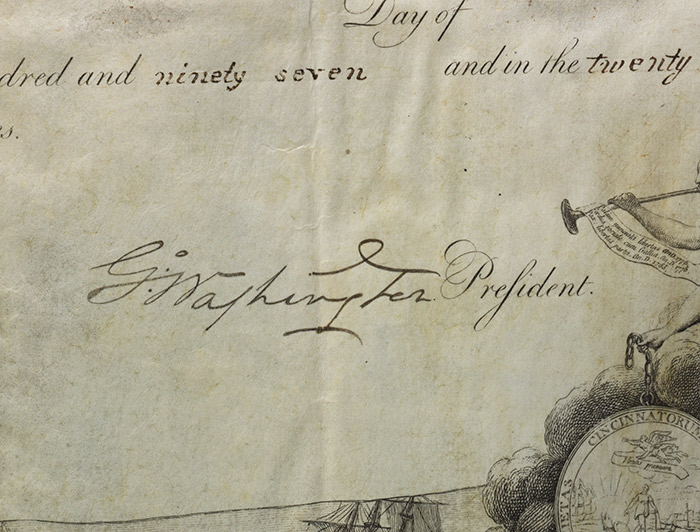 Day of
dred and ninety seven and in the twenty
es.
G:Washington President.
CINCINNATORUM
ETAS